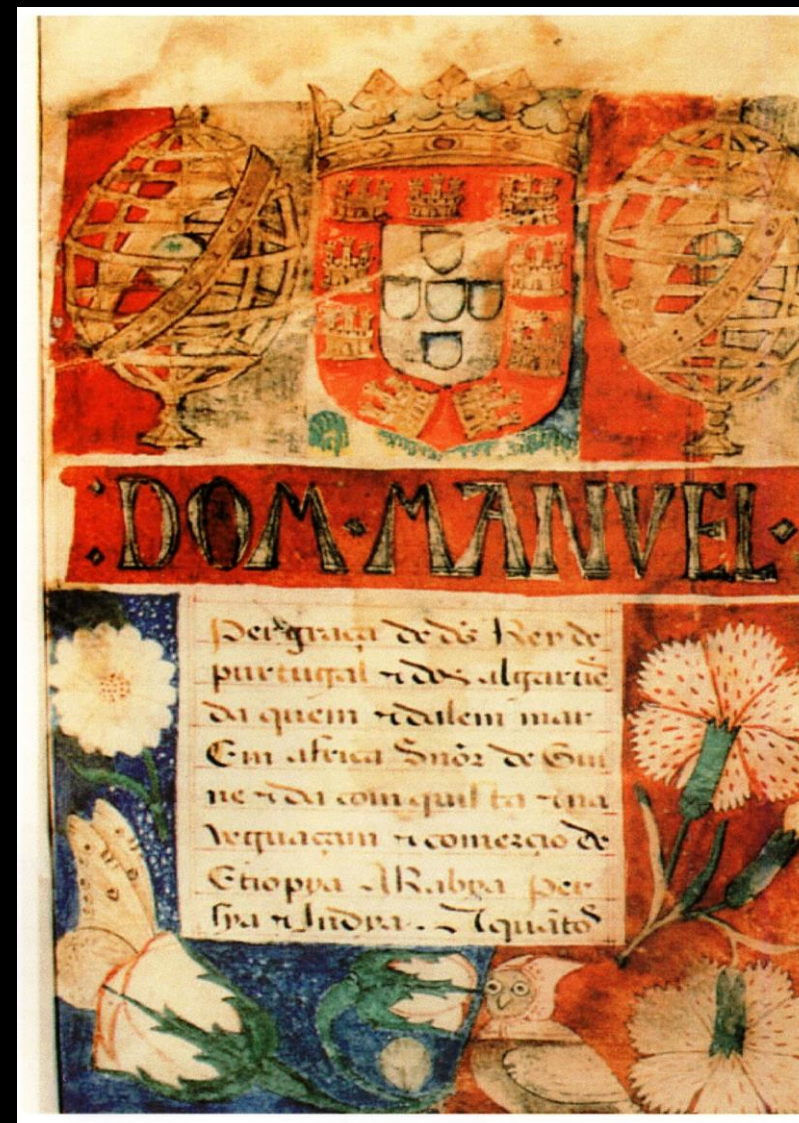 : DOM · MANVEL ·
Per graça de ds Rey de
purtugal ⁊ dos algarues
da quem ⁊ dalem mar
Em africa Snõr de Gui
ne ⁊ da comquista ⁊ na
veguaçam ⁊ comerçio de
Etiopya ARabya per
sya ⁊ Indya. A quãtos